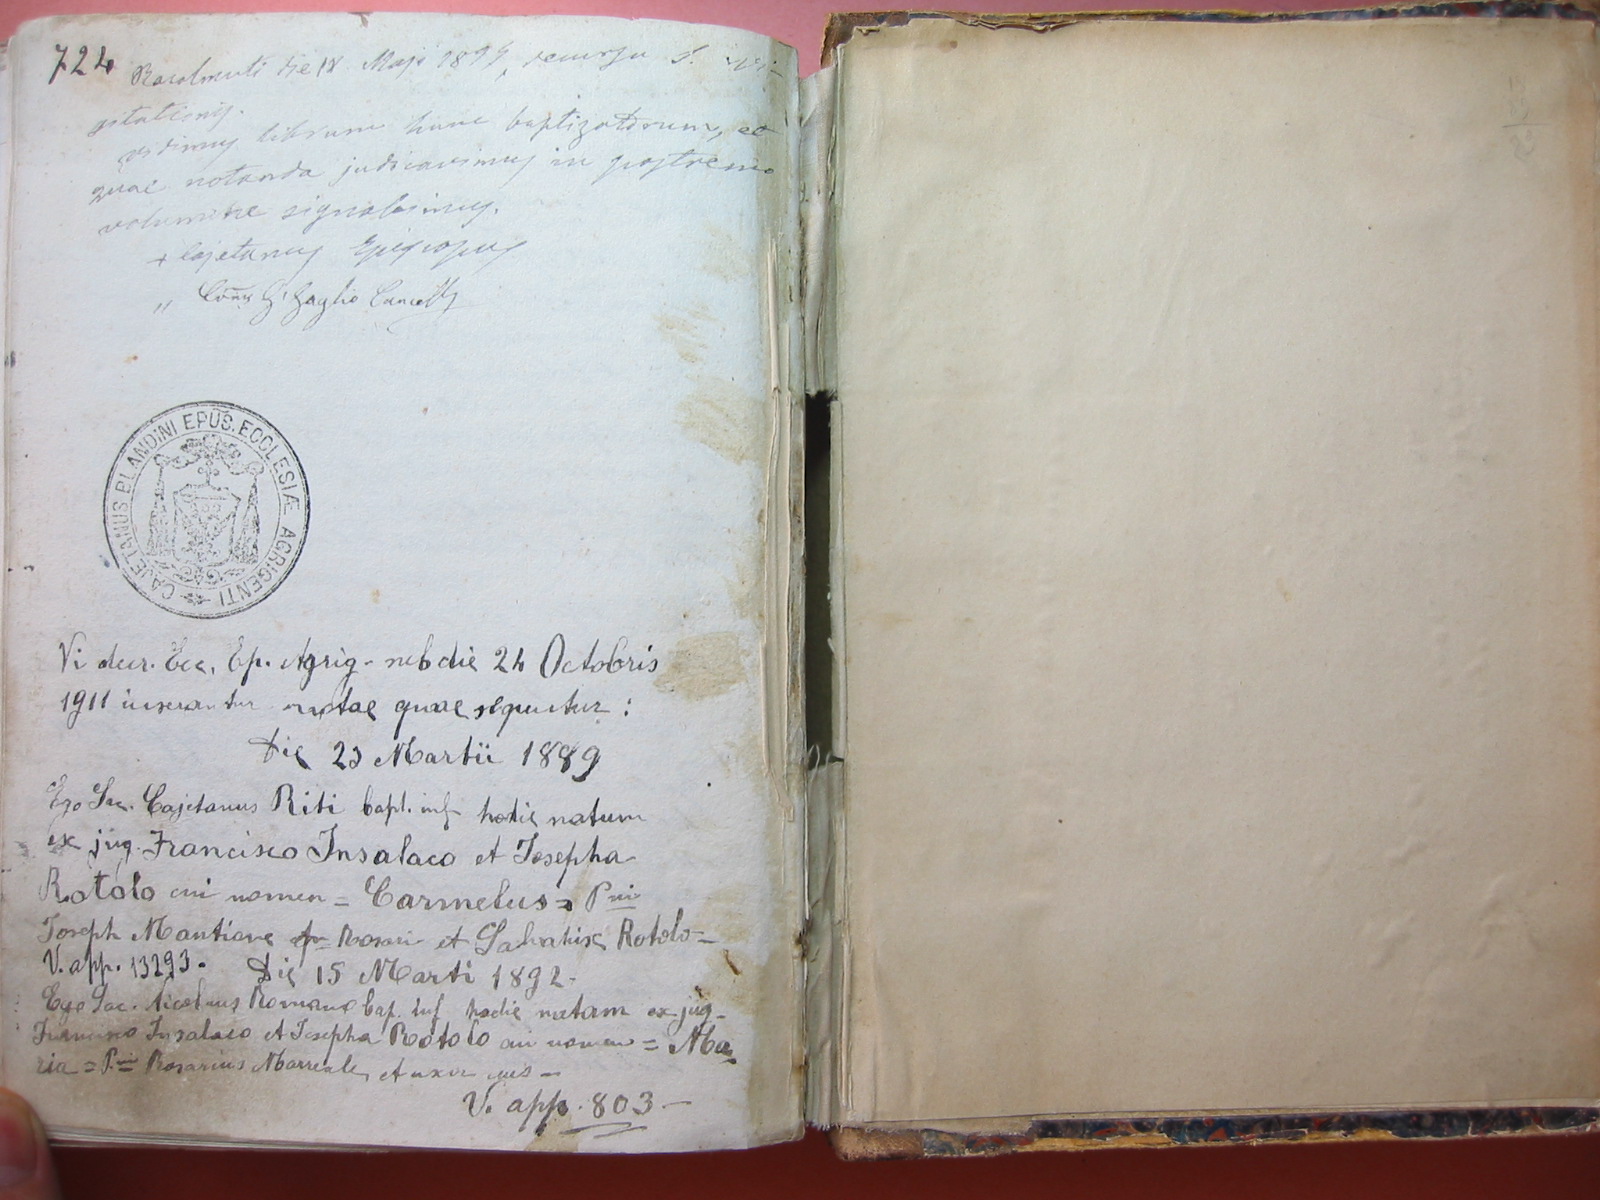 724
Racalmuti die 18 Maji 1899, decursu S. Visi-
tationis.
vidimus librum hunc baptizatorum, et
quae notanda judicavimus in postremo
volumine signabimus.
+ Cajetanus Episcopus
" G. Gaglio
CAJETANUS BLANDINI EPUS. ECCLESIÆ AGRIGENTI
Vi decr. Ecc. Ep. Agrig. sub die 24 Octobris
1911 inserantur notae quae sequntur:
Die 23 Martii 1889
Ego Sac. Cajetanus Riti bapt. inf. hodie natum
ex jug. Francisco Insalaco et Josepha
Rotolo cui nomen = Carmelus = Pni
Joseph Mantione Rosari et Salvatrix Rotolo =
V. app. 13293. Die 15 Marti 1892.
Ego Sac. Nicolaus Romano bap. inf. hodie natam ex jug.
Francisco Insalaco et Josepha Rotolo cui nomen = Ma
ria = Pni Rosarius Marreale, et uxor ejus =
V. app. 803 —